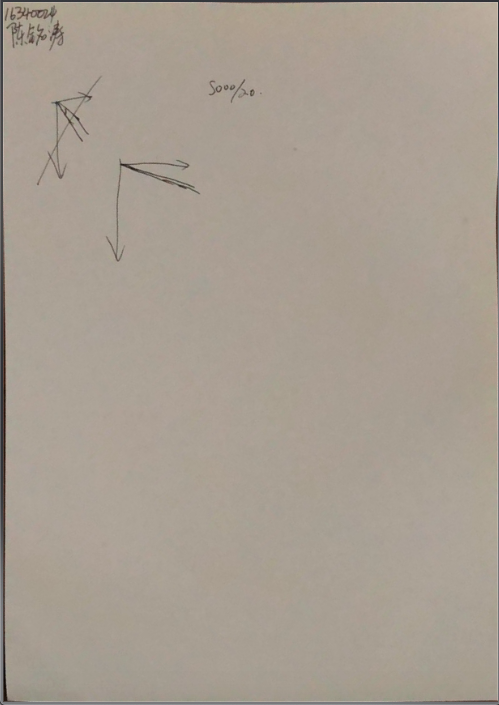 16340024
陈铭涛
5000/20.